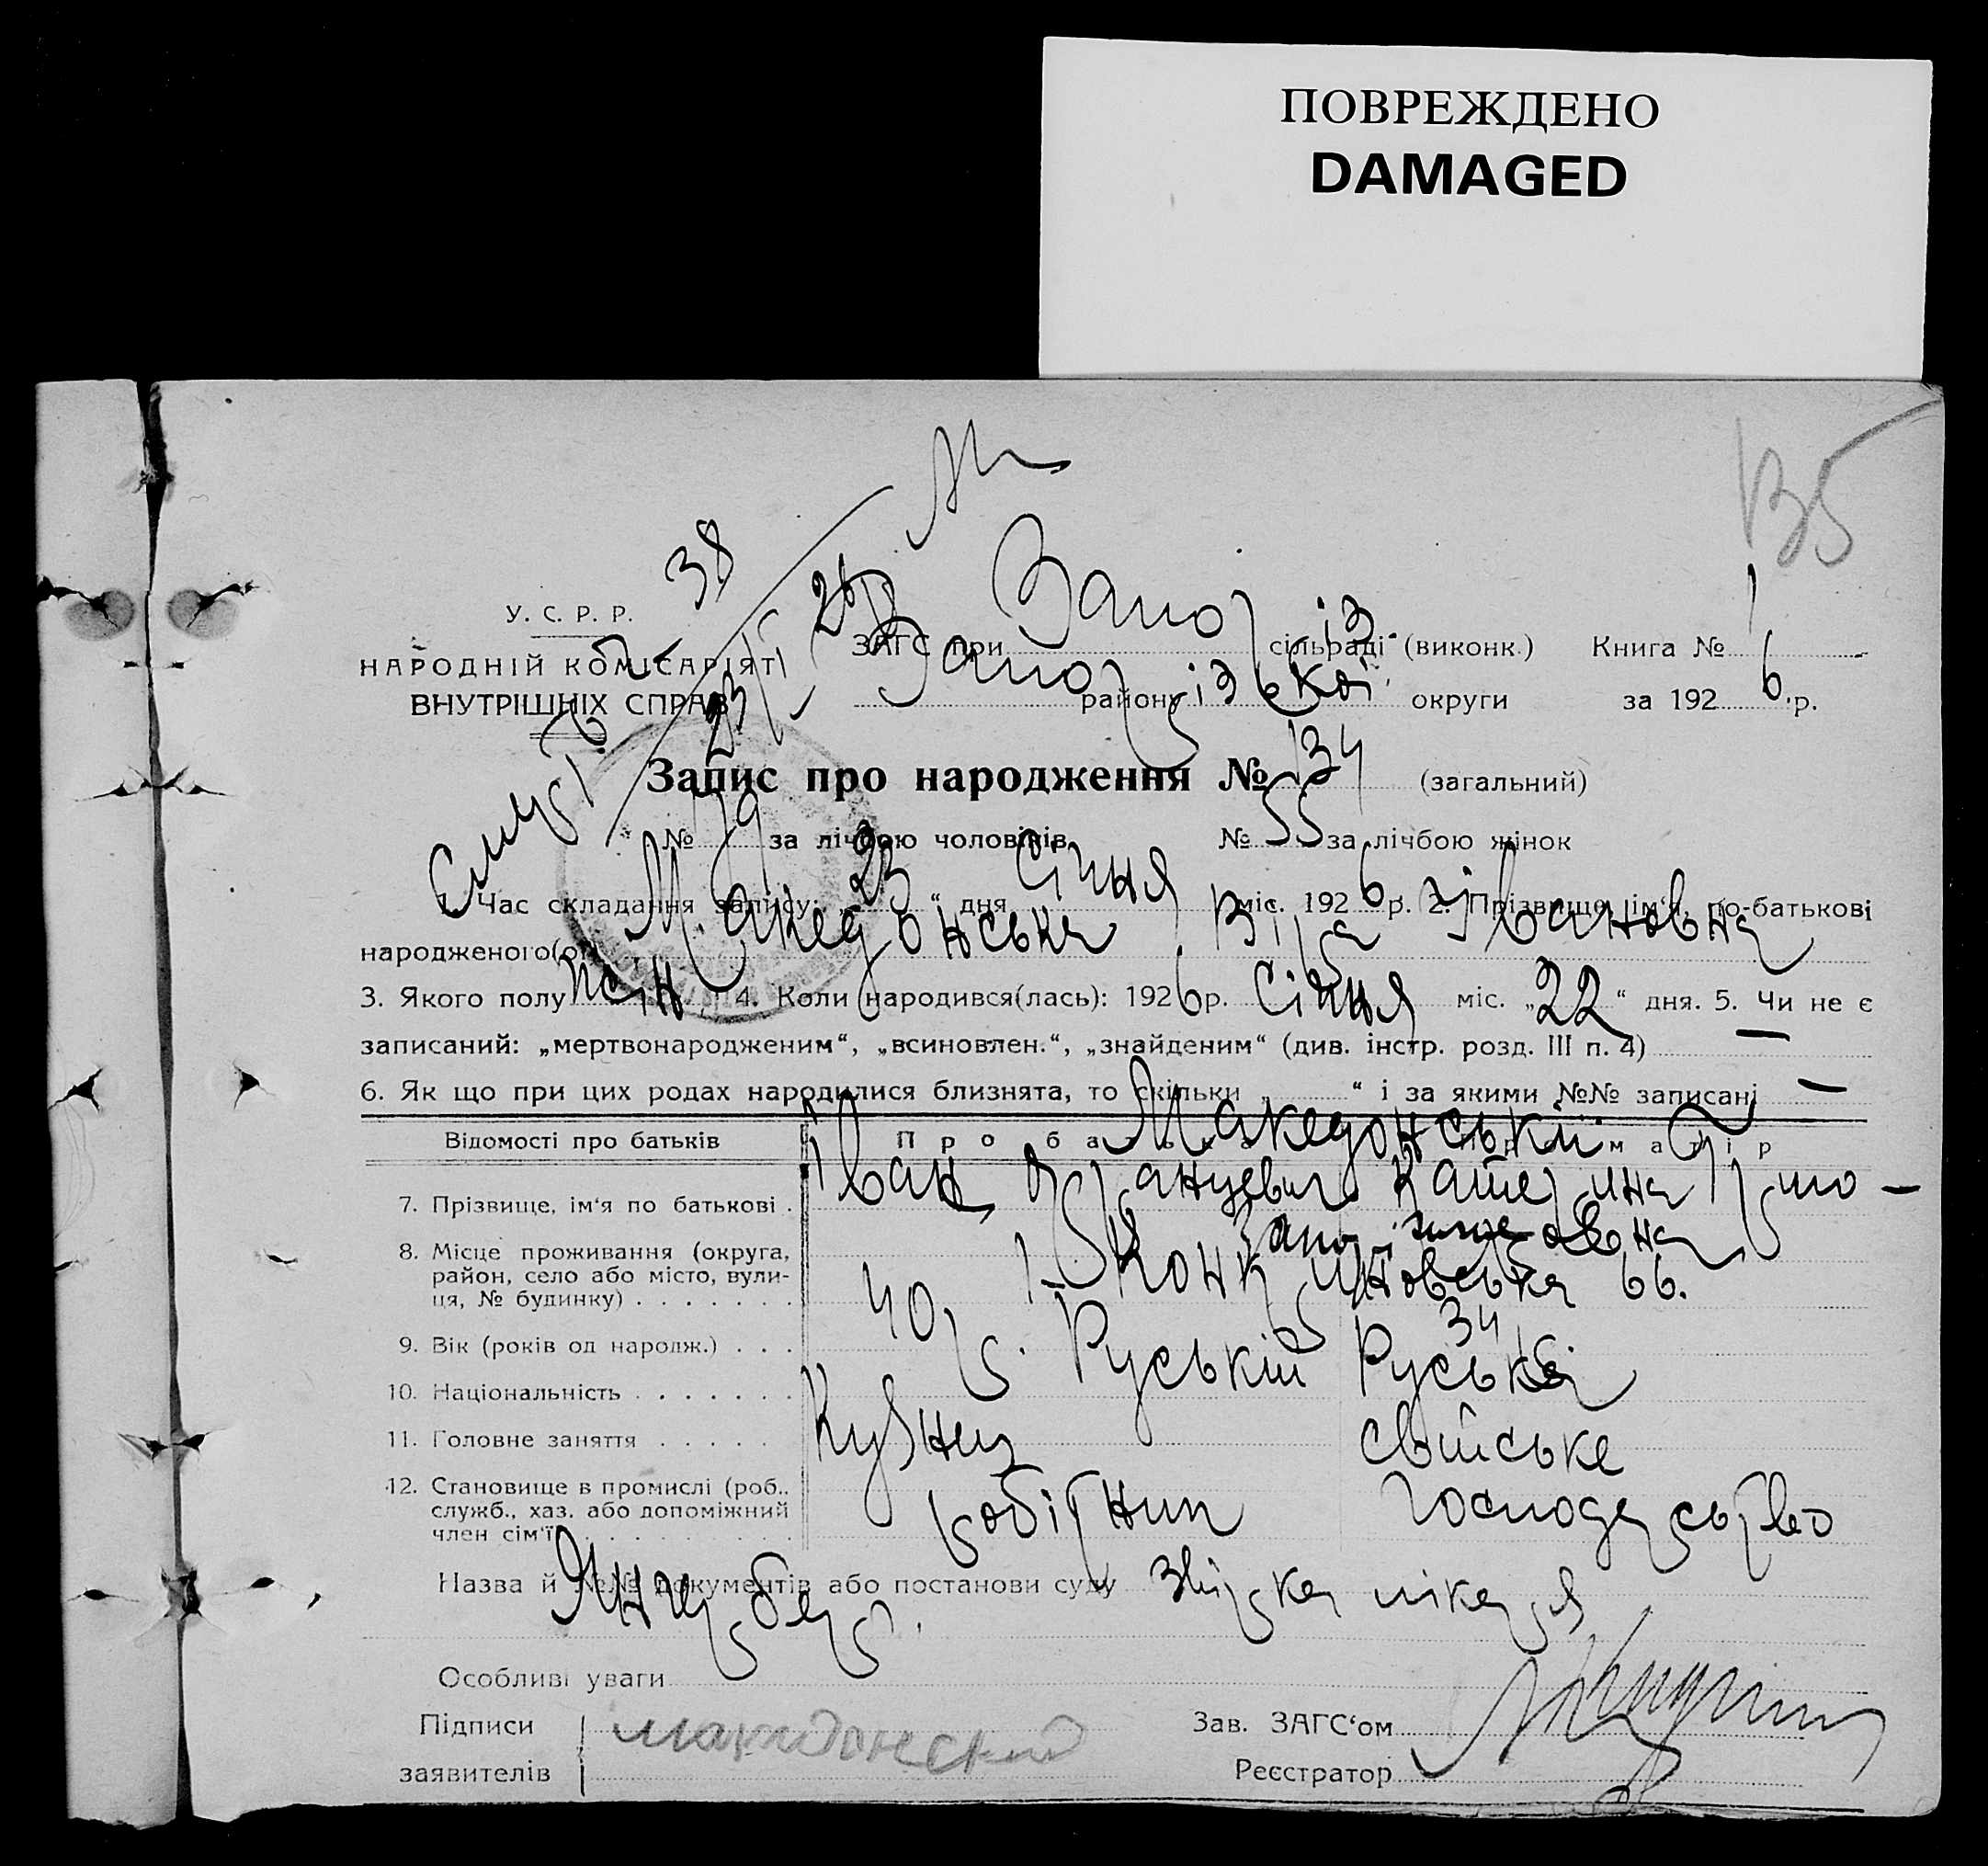 ПОВРЕЖДЕНО
DAMAGED
135
38
У. С. Р. Р.
НАРОДНІЙ КОМІСАРІЯТ
ВНУТРІШНІХ СПРАВ
ЗАГС при Запоріз. сільраді (виконк.) Книга № 1
Запорізької району округи за 1926 р.
Запис про народження № 134 (загальний)
№ 79 за лічбою чоловіків № 55 за лічбою жінок
1. Час складання запису: „23“ дня Січня міс. 1926 р. 2. Прізвище, ім‘я, по-батькові
народженого(ої) Македонська Віра Івановна
3. Якого полу жін 4. Коли народився(лась): 1926 р. Січня міс. „22“ дня. 5. Чи не є
записаний: „мертвонародженим“, „всиновлен.“, „знайденим“ (див. інстр. розд. III п. 4) —
6. Як що при цих родах народилися близнята, то скільки „ “ і за якими №№ записані —
Відомості про батьків Про батька Про матір
Македонськи
7. Прізвище, ім‘я по батькові . Іван Катерина
8. Місце проживання (округа,
район, село або місто, вули-
ця, № будинку) . . . . . . . 66.
9. Вік (років од народж.) . . . 40 р. 34
10. Національність . . . . . . . Руській Руська
11. Головне заняття . . . . . Кузнец свійське
12. Становище в промислі (роб.,
служб., хаз. або допоміжний
член сім‘ї) робітник господарство
Назва й №№ документів або постанови суду Звідка лікаря
Янцнбер.
Особливі уваги
Підписи Македонский Зав. ЗАГС‘ом
заявителів Реєстратор